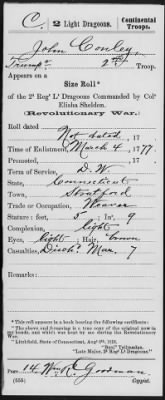 C. | 2 Light Dragoons. | Continental Troops.
John Conley
Trump^r 2^d Troop.
Appears on a
Size Roll*
of the 2^d Reg^t L^t Dragoons Commanded by Col^o
Elisha Sheldon.
(Revolutionary War.)
Roll dated Not dated, 17
Time of Enlistment, March 4, 1777.
Promoted, , 17
Term of Service, D. W.
State, Connecticut
Town, Stratford
Trade or Occupation, Weaver
Stature: feet, 5 ; In^s, 9
Complexion, light
Eyes, light ; Hair, brown
Casualties, Disch^d Mar. 7
Remarks:
*This roll appears in a book bearing the following certificate:
"The above and foregoing is a true copy of the original now in
my hands, and which was kept by me during the Revolutionary
War.
"Litchfield, State of Connecticut, Aug^t 9th, 1828.
"Benj^n Tallmadge,
"Late Major, 2^d Reg^t L^t Dragoons."
Page, 14 Wm. R. Goodman
(555) Copyist.